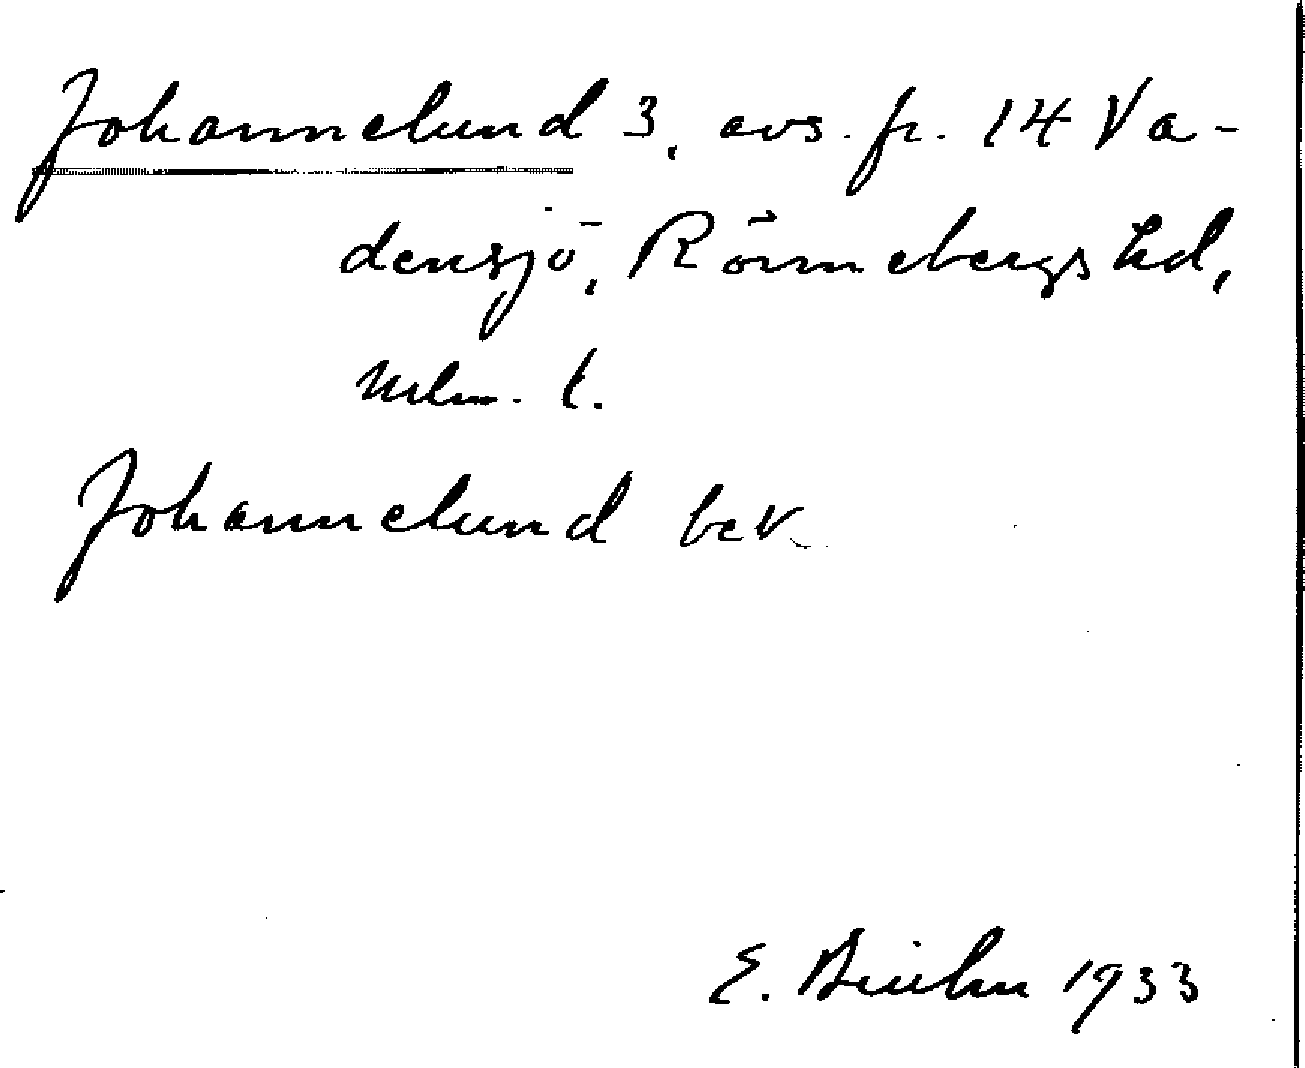 Johannelund 3, avs. fr. 14 Va-
densjö, Rönnebergs hd,
Mlm. l.
Johannelund bev.
E. 1933